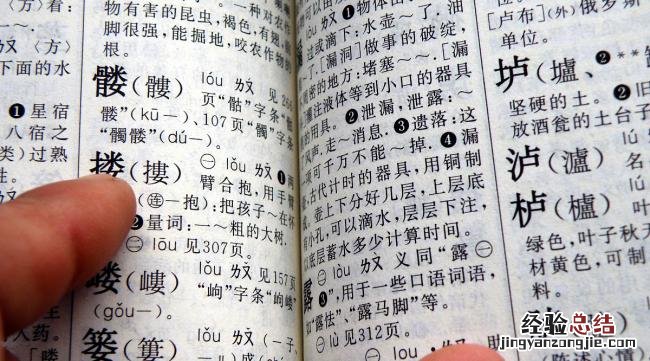 物有害的昆虫，褐色，有翅，前
脚很强，能掘地，咬农作物的
根。
髅(髏) lóu ㄌㄡˊ 见264
页“骷”字条“骷
髅”(kū—)、107页“髑”字条
“髑髅”(dú—)。
搂(摟) ㊀ lǒu ㄌㄡˇ ❶两
臂合抱，用手臂
(㊣—抱)：把孩子～在怀
❷量词：一～粗的大树.
㊁ lōu 见307页.
嵝(嶁) lǒu ㄌㄡˇ 见157页
“岣”字条“岣嵝”
(gǒu—).
篓(簍) lǒu ㄌㄡˇ (—子
❶物体由
过或滴下：水壶～了.
～了.[漏洞]做事的破绽，
周密的地方：堵塞～～.[漏
灌注液体等到小口的器具
的用具. ❷泄漏，泄露：～
风声. 走～消息. ❸遗落：这
项可千万不能～掉. ❹漏
古代计时的器具，用铜制
壶上下分好几层，上层底
小孔，可以滴水，层层下注，
底层蓄水多少计算时间。
露㊁ lòu ㄌㄡˋ 义同“露㊀
❸”，用于一些口语词语，
如“露怯”、“露马脚”等。
㊀ lù 见312页.
[卢布](外)俄罗斯
单位.
垆(壚、
坚硬的土. ❷旧
放酒瓮的土台子
泸(瀘)
栌(櫨)
绿色，叶子秋天
材黄色，可制
料.
〈方〉
下面的水
❶星宿
八宿之
类)过熟
经验总结
jingyanzongjie.com